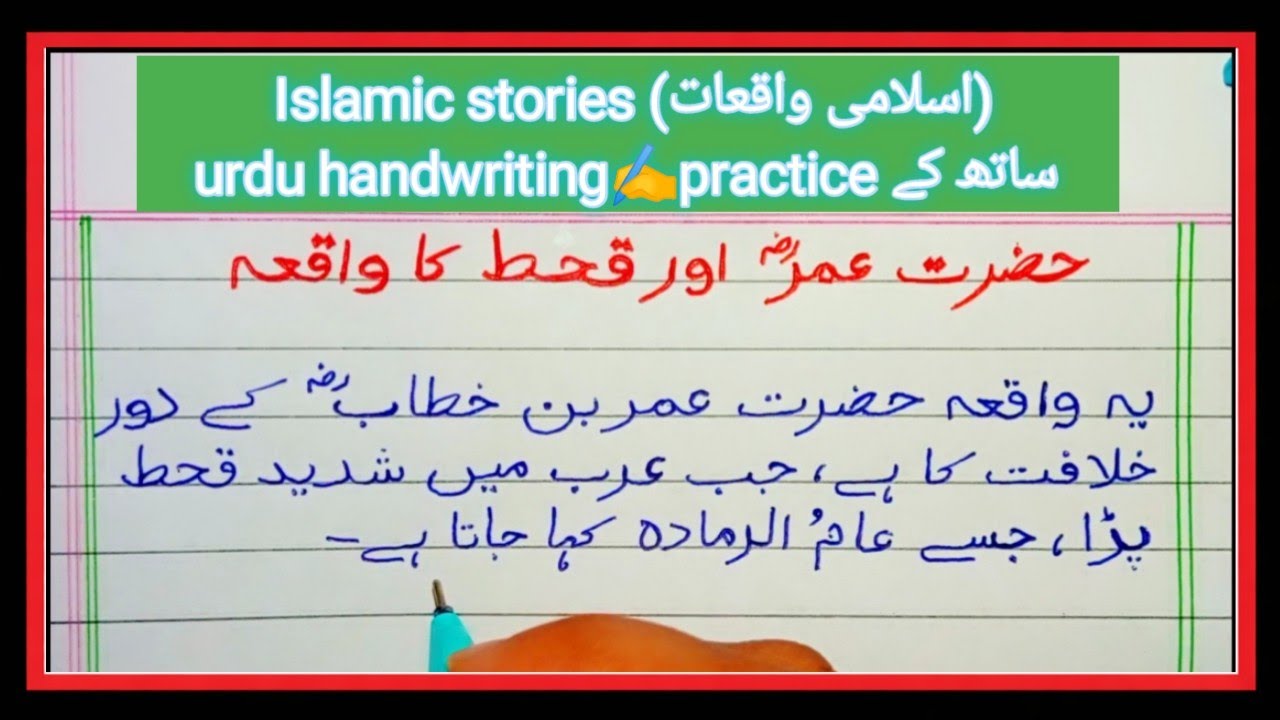 Islamic stories (اسلامی واقعات)
urdu handwriting✍practice ساتھ کے
حضرت عمرؓ اور قحط کا واقعہ
یہ واقعہ حضرت عمر بن خطابؓ کے دور
خلافت کا ہے، جب عرب میں شدید قحط
پڑا، جسے عامُ الرمادہ کہا جاتا ہے۔